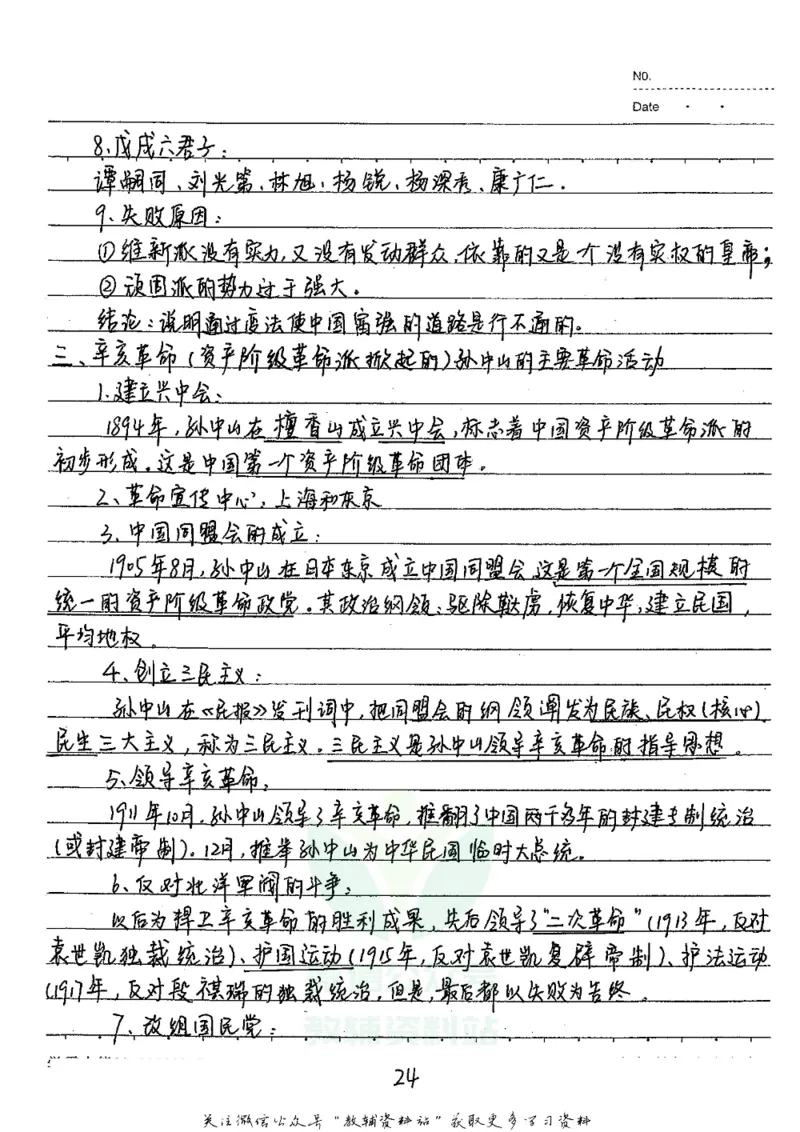 No.
Date
8、戊戌六君子：
谭嗣同、刘光第、林旭、杨锐、杨深秀、康广仁．
9、失败原因：
①维新派没有实力，又没有发动群众，依靠的又是个没有实权的皇帝；
②顽固派的势力过于强大。
结论：说明通过变法使中国富强的道路是行不通的。
三、辛亥革命（资产阶级革命派掀起的）孙中山的主要革命活动
1.建立兴中会：
1894年，孙中山在檀香山成立兴中会，标志着中国资产阶级革命派的
初步形成。这是中国第一个资产阶级革命团体。
2、革命宣传中心：上海和东京
3、中国同盟会的成立：
1905年8月，孙中山在日本东京成立中国同盟会，这是第一个全国规模的
统一的资产阶级革命政党。其政治纲领：驱除鞑虏，恢复中华，建立民国，
平均地权。
4、创立三民主义：
孙中山在《民报》发刊词中，把同盟会的纲领阐发为民族、民权（核心）、
民生三大主义，称为三民主义。三民主义是孙中山领导辛亥革命的指导思想。
5、领导辛亥革命：
1911年10月，孙中山领导了辛亥革命，推翻了中国两千多年的封建专制统治
（或封建帝制）。12月，推举孙中山为中华民国临时大总统。
6、反对北洋军阀的斗争：
以后为捍卫辛亥革命的胜利成果，先后领导了"二次革命"（1913年，反对
袁世凯独裁统治）、护国运动（1915年，反对袁世凯复辟帝制）、护法运动
（1917年，反对段祺瑞的独裁统治，但是，最后都以失败为告终。
7、改组国民党：
教辅资料站
24
关注微信公众号"教辅资料站"获取更多学习资料